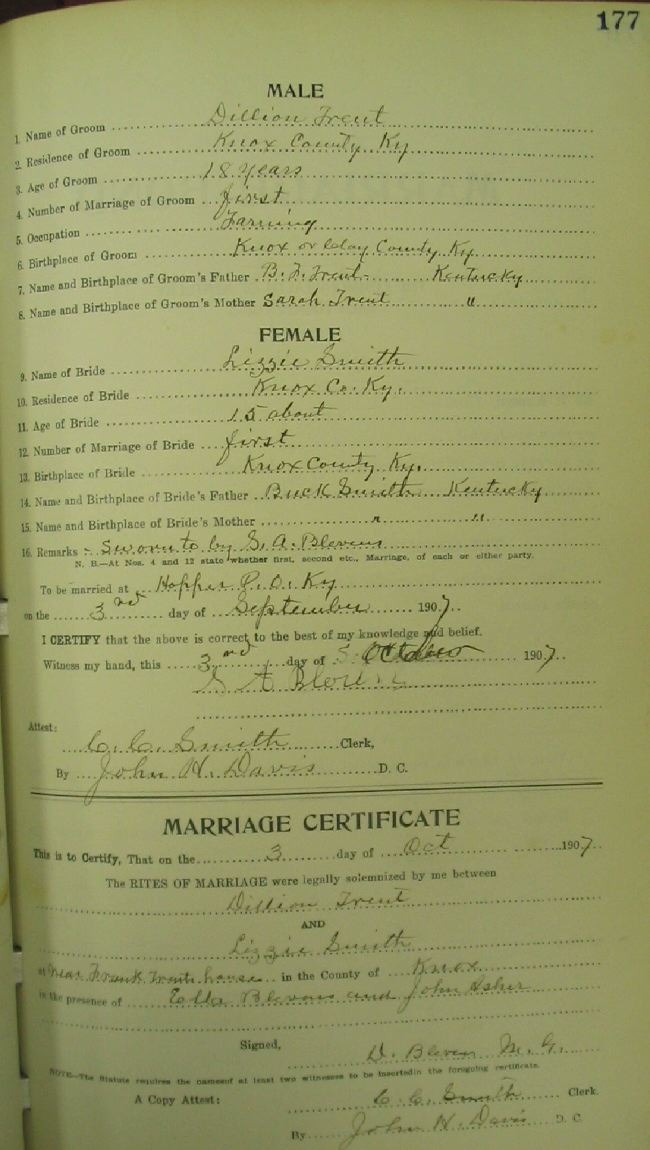 177
MALE
1. Name of Groom Dillion Trent
2. Residence of Groom Knox County Ky
3. Age of Groom 18 years
4. Number of Marriage of Groom first
5. Occupation Farming
6. Birthplace of Groom Knox or Clay County Ky
7. Name and Birthplace of Groom's Father B. F. Trent Kentucky
8. Name and Birthplace of Groom's Mother Sarah Trent "
FEMALE
9. Name of Bride Lizzie Smith
10. Residence of Bride Knox Co. Ky.
11. Age of Bride 15 about
12. Number of Marriage of Bride first
13. Birthplace of Bride Knox County Ky.
14. Name and Birthplace of Bride's Father Buck Smith Kentucky
15. Name and Birthplace of Bride's Mother " "
16. Remarks - Sworn to by S. A. Blevens
N. B.—At Nos. 4 and 12 state whether first, second etc., Marriage, of each or either party.
To be married at Hopper P. O. Ky
on the 3rd day of September 1907
I CERTIFY that the above is correct to the best of my knowledge and belief.
Witness my hand, this 3rd day of October 1907
S A
Attest:
C. C. Smith Clerk,
By John H. Davis D. C.
MARRIAGE CERTIFICATE
This is to Certify, That on the 3 day of Oct 1907
The RITES OF MARRIAGE were legally solemnized by me between
Dillion Trent
AND
Lizzie Smith
at Near Frank Trents house in the County of Knox
in the presence of Ella Blevens and John Asher
Signed,
D. Bleven M. G.
NOTE—The Statute requires the names of at least two witnesses to be inserted in the foregoing certificate.
A Copy Attest: C. C. Smith Clerk.
By John H. Davis D. C.